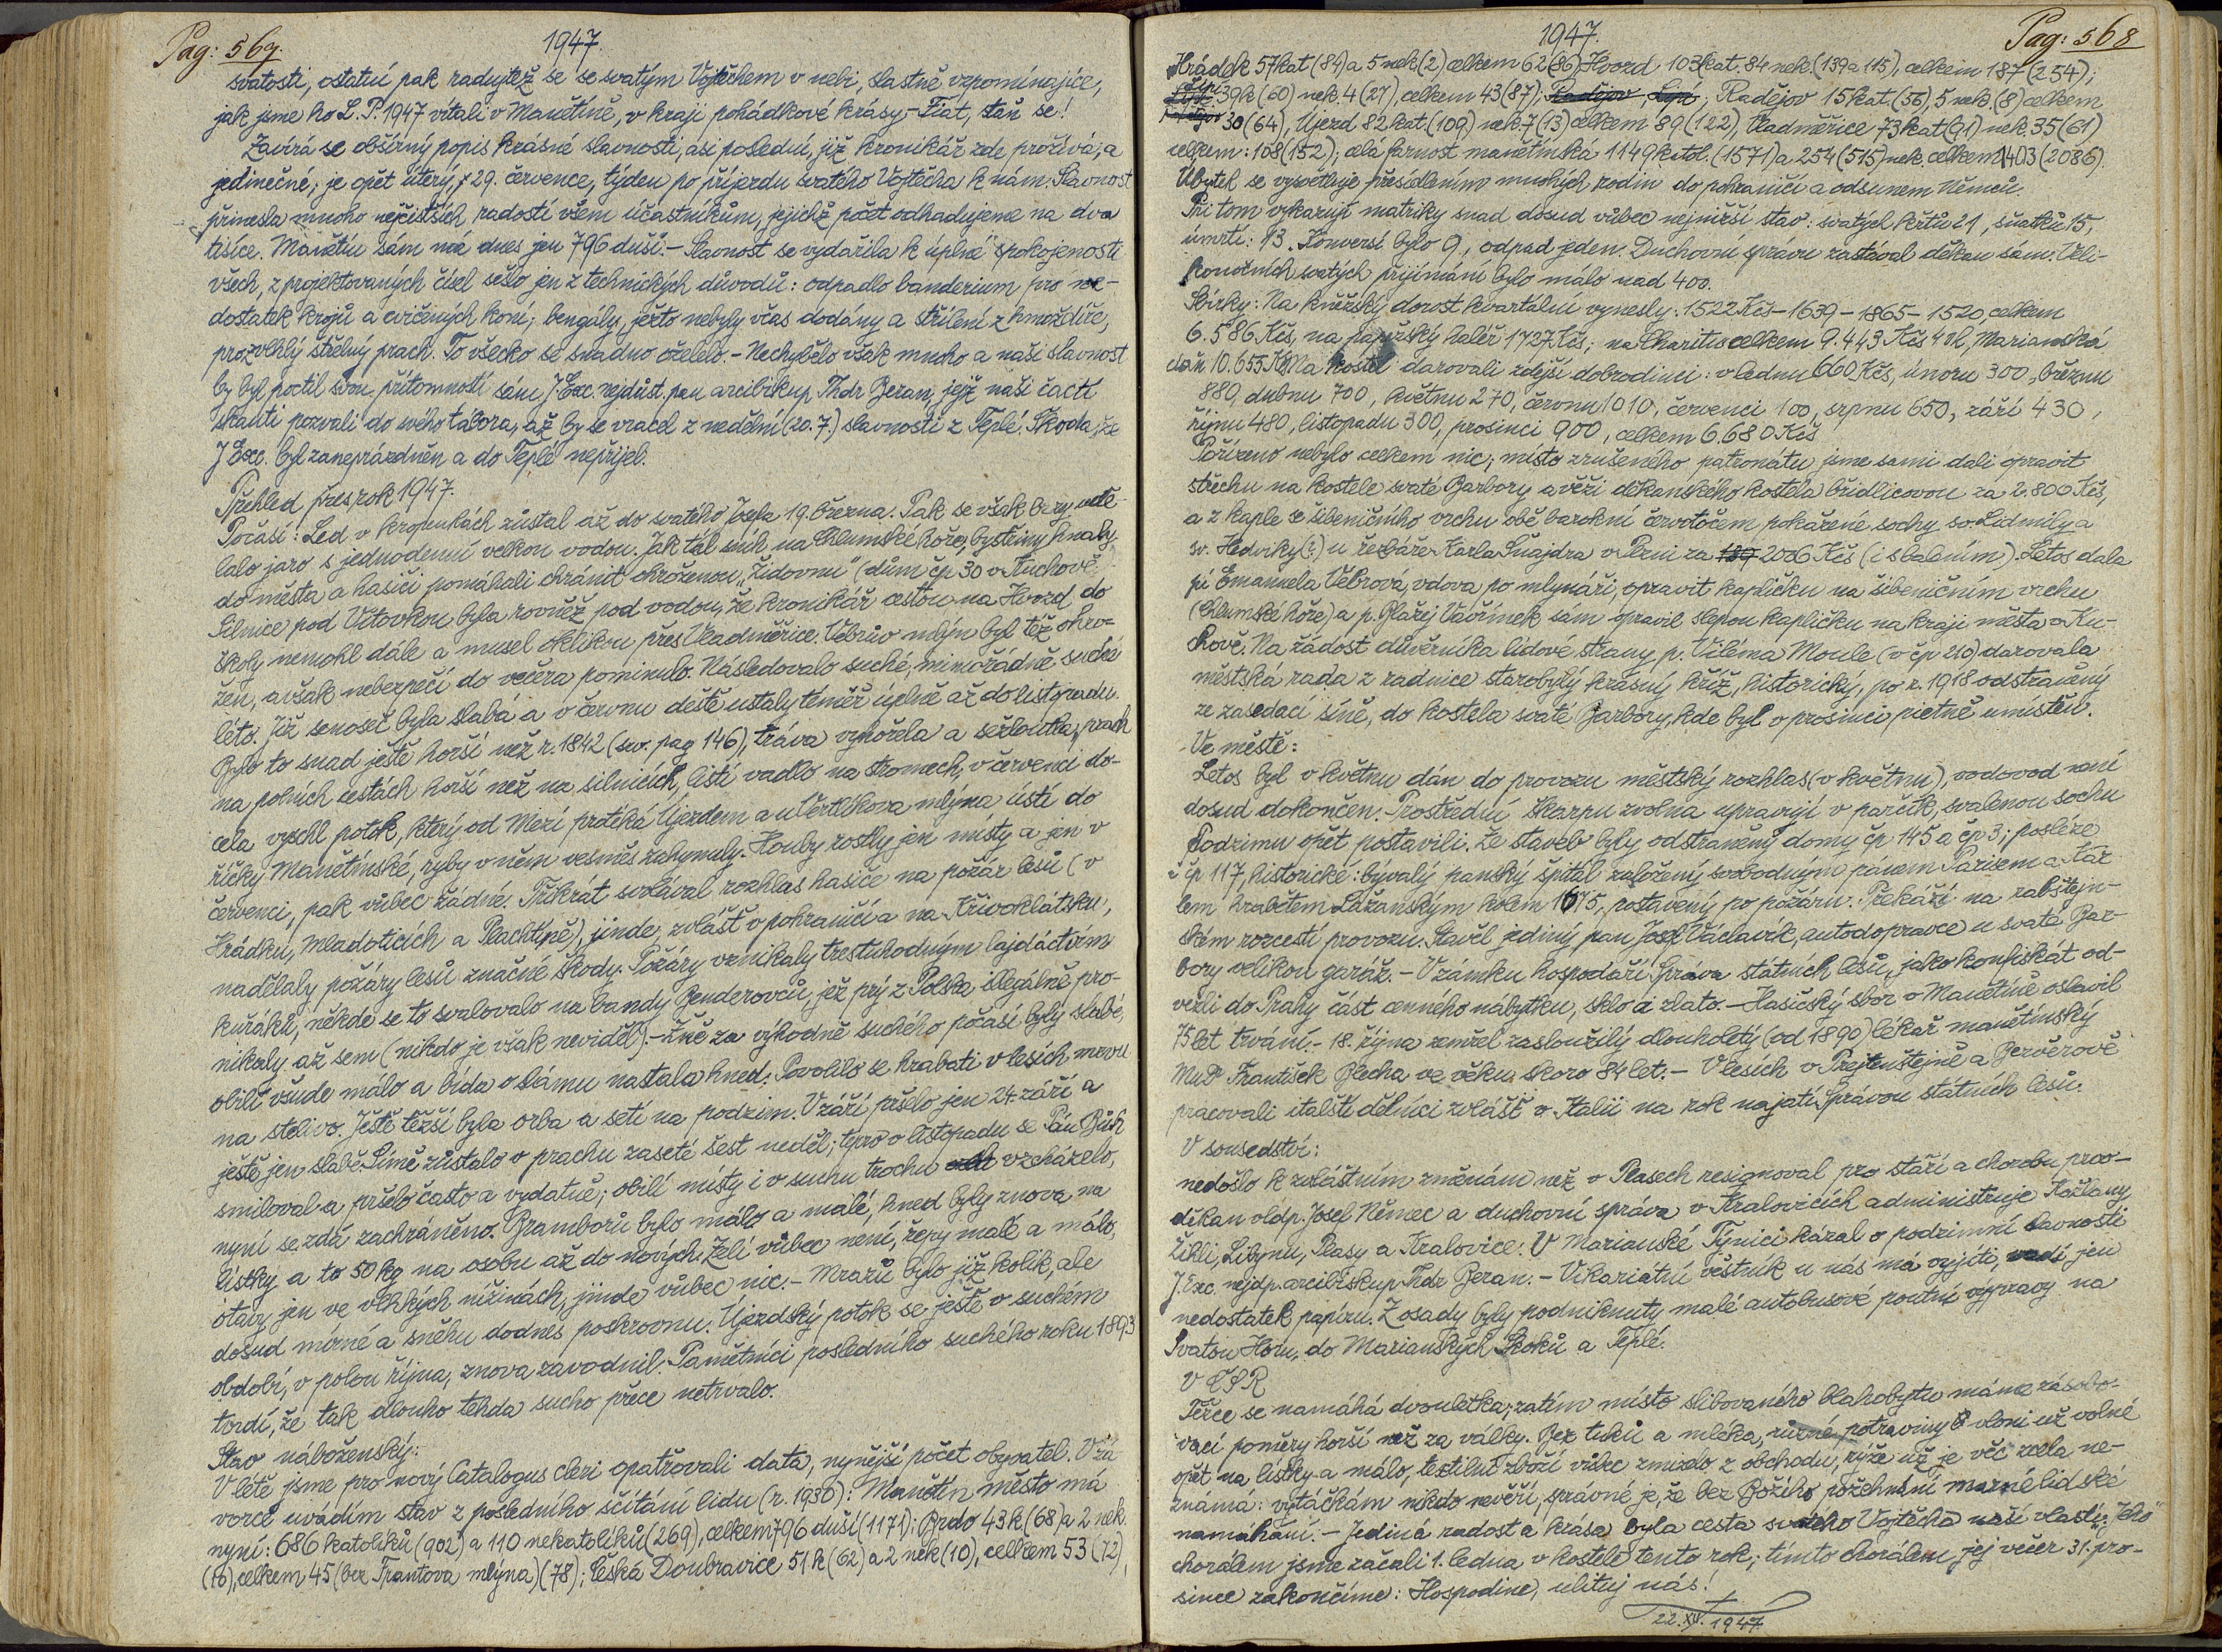 Pag: 567.
1947.
svatosti, ostatní pak radujtež se se svatým Vojtěchem v nebi, slastně vzpomínajíce,
jak jsme ho L. P. 1947 vítali v Manětíně, v kraji pohádkové krásy. - Fiat, staň se!
Zavírá se obšírný popis krásné slavnosti, asi poslední, již kronikář zde prožívá, a
jedinečné; je opět úterý, 29. července, týden po příjezdu svatého Vojtěcha k nám. Slavnost
přinesla mnoho nejčistších radostí všem účastníkům, jejichž počet odhadujeme na dva
tisíce. Manětín sám má dnes jen 796 duší. - Slavnost se vydařila k úplné spokojenosti
všech, z projektovaných čísel sešlo jen z technických důvodů: odpadlo banderium pro ne-
dostatek krojů a cvičených koní; bengály, ježto nebyly včas dodány a střílení z hmoždíře,
pro zvlhlý střelný prach. To všecko se snadno oželelo. - Nechybělo však mnoho a naši slavnost
by byl poctil svou přítomností sám J. Exc. nejdůst. pan arcibiskup Thdr Beran, jejž naši čactí
skauti pozvali do svého tábora, až by se vracel z nedělní (20. 7.) slavnosti z Teplé. Škoda, že
J. Exc. byl zaneprázdněn a do Teplé nepřijel.
Přehled přes rok 1947.
Počasí: Led v kropenkách zůstal až do svatého Josefa 19. března. Pak se však brzy udě-
lalo jaro s jednodenní velkou vodou. Jak tál sníh na Chlumské hoře, bystřiny hnaly
do města a hasiči pomáhali chránit ohroženou "Židovnu" (dům čp 30 v Kuchově.
Silnice pod Vítovkou byla rovněž pod vodou, že kronikář cestou na Hvozd do
školy nemohl dále a musel oklikou přes Vladměřice. Vébrův mlýn byl též ohro-
žen, avšak nebezpečí do večera pominulo. Následovalo suché, mimořádně suché
léto. Již senoseč byla slabá a v červnu deště ustaly téměř úplně až do listopadu.
Bylo to snad ještě horší než r. 1842 (sv. pag 146), tráva vyhořela a sežloutla, prach
na polních cestách horší než na silnicích, listí vadlo na stromech, v červenci do-
cela vyschl potok, který od Mezí protéká Újezdem a u Vertlíkova mlýna ústí do
říčky Manětínské, ryby v něm vesměs zahynuly. Houby rostly jen místy a jen v
červenci, pak vůbec žádné. Třikrát svolával rozhlas hasiče na požár lesů (v
Hrádku, Mladoticích a Plachtíně), jinde, zvlášť v pohraničí a na Křivoklátsku,
nadělaly požáry lesů značné škody. Požáry vznikaly trestuhodným lajdáctvím
kuřáků, někde se to svalovalo na bandy Benderovců, jež prý z Polska illegálně pro-
nikaly až sem (nikdo je však neviděl). - Žně za výhodně suchého počasí byly slabé,
obilí všude málo a bída o slámu nastala hned. Povolilo se hrabati v lesích mrvu
na stelivo. Ještě těžší byla orba a setí na podzim. V září pršelo jen 24. září a
ještě jen slabě. Símě zůstalo v prachu zaseté šest neděl; teprv v listopadu se Pán Bůh
smiloval a pršelo často a vydatně; obilí místy i v suchu trochu vzcházelo,
nyní se zdá zachráněno. Bramborů bylo málo a malé, hned byly znova na
lístky a to 50 kg na osobu až do nových. Zelí vůbec není, řepy malé a málo,
otavy jen ve vlhkých nížinách, jinde vůbec nic. - Mrazů bylo již kolik, ale
dosud mírné a sněhu dodnes poskrovnu. Újezdský potok se ještě v suchém
období, v polou října, znova zavodnil. Pamětníci posledního suchého roku 1893
tvrdí, že tak dlouho tehda sucho přece netrvalo.
Stav náboženský:
V létě jsme pro nový Catalogus cleri opatřovali data, nynější počet obyvatel. V zá-
vorce uvádím stav z posledního sčítání lidu (r. 1930): Manětín město má
nyní: 686 katolíků (902) a 110 nekatolíků (269), celkem 796 duší (1171); Brdo 43 k (68) a 2 nek
(10), celkem 45 (bez Trantova mlýna) (78); Česká Doubravice 51 k (62) a 2 nek (10), celkem 53 (72),
1947.
Pag: 568
Hrádek 57 kat (84) a 5 nek (2) celkem 62 (86), Hvozd 103 kat. 84 nek. (139 a 115), celkem 187 (254);
Lipí 39 k (60) nek. 4 (27), celkem 43 (87); Radějov, Lipí; Radějov 15 kat. (56), 5 nek. (8) celkem
30 (64), Újezd 82 kat. (109) nek. 7 (13) celkem 89 (122), Vladměřice 73 kat (91) nek. 35 (61)
celkem: 108 (152); celá farnost manětínská 1149 katol. (1571) a 254 (515) nek. celkem 1403 (2086).
Úbytek se vysvětluje přesídlením mnohých rodin do pohraničí a odsunem Němců.
Při tom vykazují matriky snad dosud vůbec nejnižší stav: svatých křtů 21, sňatků 15,
úmrtí: 13. Konversí bylo 9, odpad jeden. Duchovní správu zastával děkan sám. Veli-
konočních svatých přijímání bylo málo nad 400.
Sbírky: Na kněžský dorost kvartální vynesly: 1522 Kčs - 1639 - 1865 - 1520, celkem
6.586 Kčs, na papežský haléř 1727 Kčs; na Charitu celkem 9.443 Kčs 40 h, Marianská
daň 10.655 Kčs. Na kostel darovali zdejší dobrodinci: v lednu 660 Kčs, únoru 300, březnu
880, dubnu 700, květnu 270, červnu 1010, červenci 100, srpnu 650, září 430,
říjnu 480, listopadu 300, prosinci 900, celkem 6.680 Kčs
Pořízeno nebylo celkem nic; místo zrušeného patronátu jsme sami dali opravit
střechu na kostele svaté Barbory a věži děkanského kostela břidlicovou za 2.800 Kčs,
a z kaple se šibeničního vrchu obě barokní červotočem pokažené sochy sv. Lidmily a
sv. Hedviky (?) u řezbáře Karla Šnajdra v Plzni za 2006 Kčs (i s balením). Letos dala
pí Emanuela Vébrová, vdova po mlynáři, opravit kapličku na šibeničním vrchu
(Chlumské hoře) a p. Blažej Vavřinek sám opravil slepou kapličku na kraji města v Ku-
chově. Na žádost důvěrníka lidové strany p. Viléma Moule (v čp 210) darovala
městská rada z radnice starobylý krásný kříž, historický, po r. 1918 odstraněný
ze zasedací síně, do kostela svaté Barbory, kde byl v prosinci pietně umístěn.
Ve městě:
Letos byl v květnu dán do provozu městský rozhlas (v květnu), vodovod není
dosud dokončen. Prostřední škarpu zvolna upravují v parčík, svalenou sochu
Podzimu opět postavili. Ze staveb byly odstraněny domy čp 145 a čp 3; posléze
i čp 117, historické: bývalý panský špitál založený svobodným pánem Parisem a Kar-
lem hrabětem Lažanským kolem 1675, postavený po požáru. Překáží na rabštejn-
ském rozcestí provozu. Stavěl jediný pan Josef Václavík, autodopravce u svaté Bar-
bory velikou garáž. - V zámku hospodáří Správa státních lesů, jako konfiskát od-
vezli do Prahy část cenného nábytku, sklo a zlato. - Hasičský sbor v Manětíně oslavil
75 let trvání. - 18. října zemřel zasloužilý dlouholetý (od 1890) lékař manětínský
MUDr František Blecha ve věku skoro 84 let. - V lesích v Preitenštejně a Bezvěrově
pracovali italští dělníci zvlášť v Italii na rok najatí Správou státních lesů.
V sousedství:
nedošlo k zvláštním změnám než v Plasech resignoval pro stáří a chorobu prov-
děkan oldp. Josef Němec a duchovní správa v Kralovicích administruje Kožlany,
Žihli, Libyni, Plasy a Kralovice. V Marianské Týnici kázal o podzimní slavnosti
J. Exc. nejdp. arcibiskup Thdr Beran. - Vikariátní věstník u nás má vyjíti, vadí jen
nedostatek papíru. Z osady byly podniknuty malé autobusové poutní výpravy na
Svatou Horu, do Marianských Skoků a Teplé.
V ČSR
Těžce se namáhá dvouletka; zatím místo slibovaného blahobytu máme zásobo-
vací poměry horší než za války. Bez tuků a mléka, různé potraviny vloni už volné
opět na lístky a málo, textilní zboží vůbec zmizelo z obchodu, rýže už je věc zcela ne-
známá: vytáčkám nikdo nevěří, správné je, že bez Božího požehnání marné lidské
namáhání. - Jediná radost a krása byla cesta svatého Vojtěcha naší vlastí. Jeho
chorálem jsme začali 1. ledna v kostele tento rok; tímto chorálem jej večer 31. pro-
since zakončíme: Hospodine, uliluj nás!
22. XII. 1947